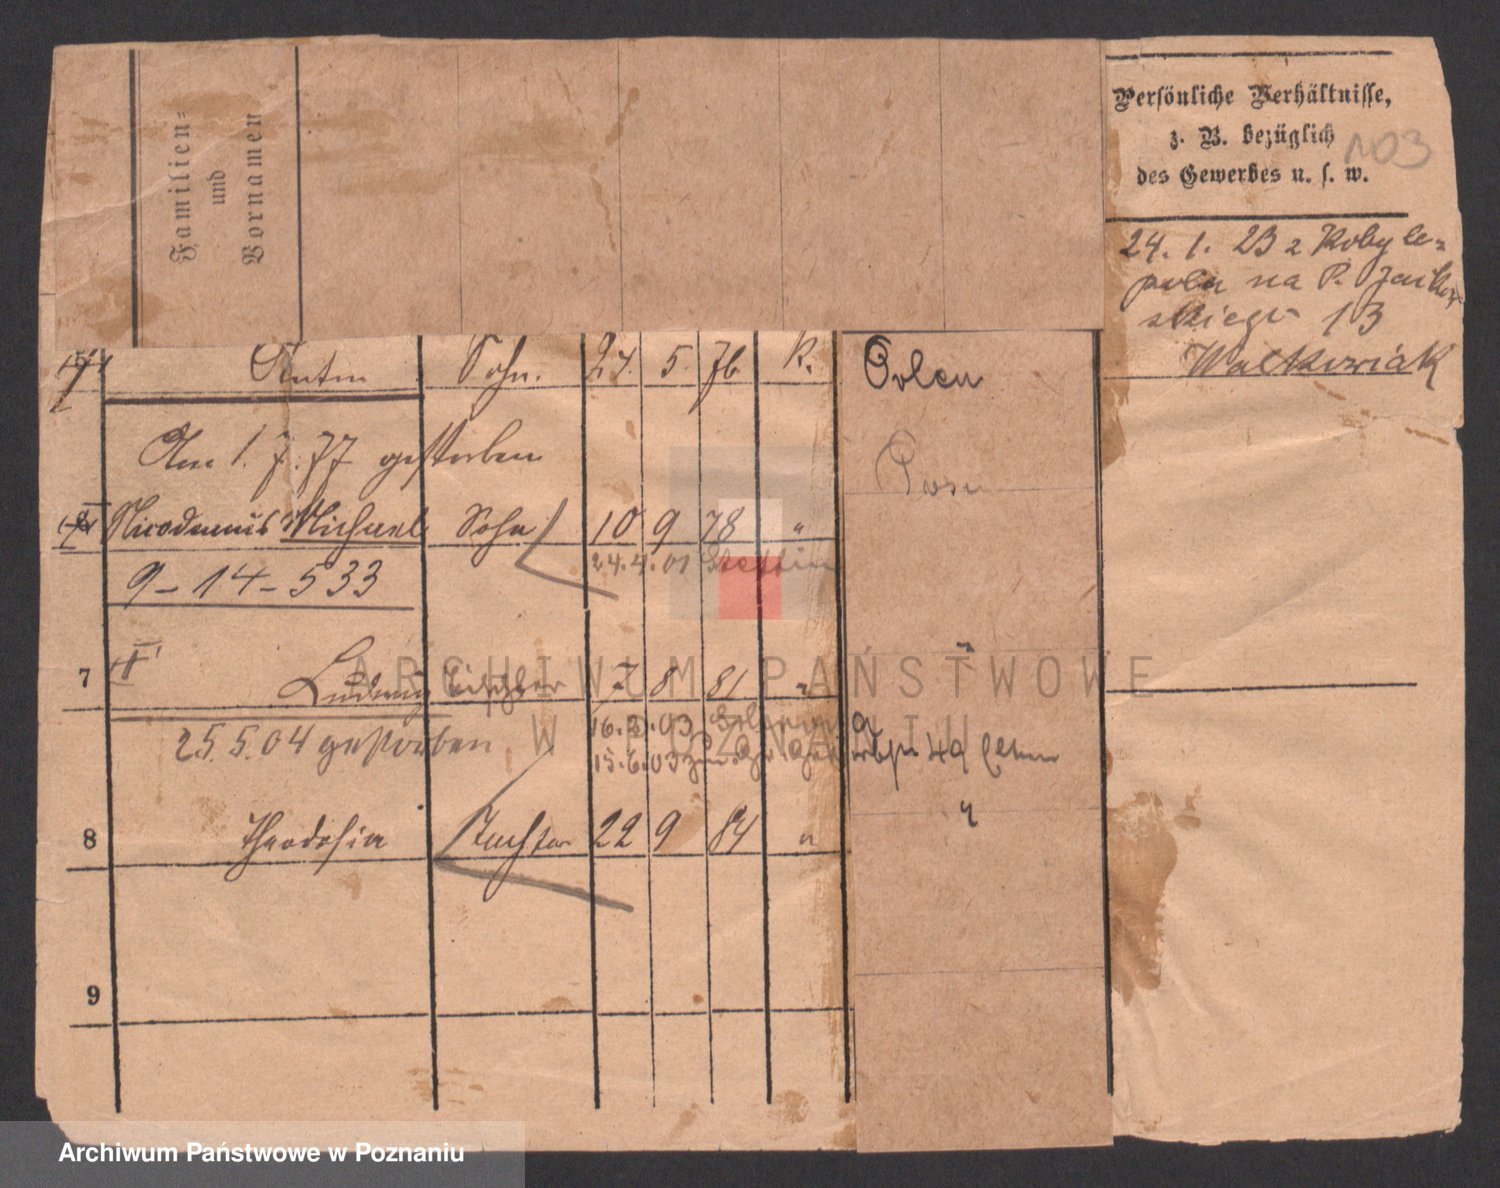 Familien-
und
Vornamen
Persönliche Verhältnisse,
z. B. bezüglich
des Gewerbes u. s. w.
103
24. 1. 23 z Kobyle-
pola na P.
skiego 13
Walkowiak
Anton Sohn. 27. 5. 76 k. Polen
Am 1. 7. 77 gestorben
Posen
Nicodemus Michael Sohn 10 9 78 "
9-14-533
24.4.01 Stettin
7 Ludwig 7 8 81 "
25.5.04 gestorben
16.3.03
15.6.03 49 Eltern
8 Theodosia Tochter 22 9 84 "
9
ARCHIWUM PAŃSTWOWE
W POZNANIU
Archiwum Państwowe w Poznaniu